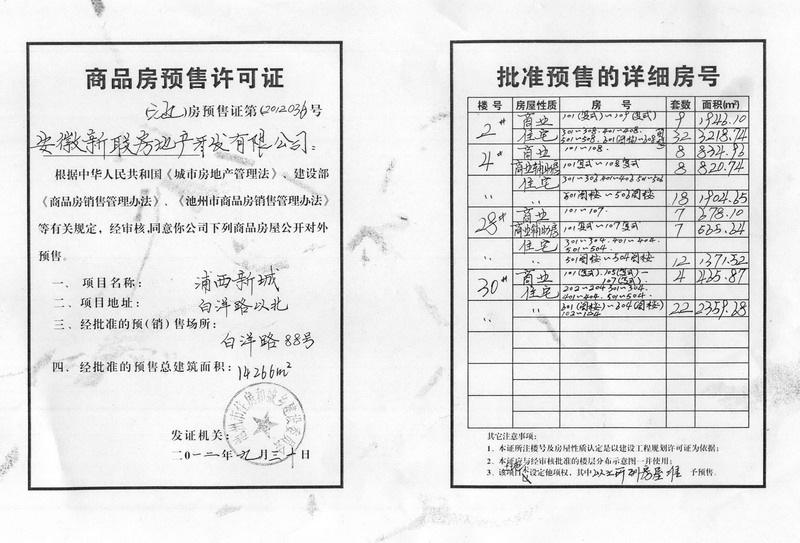 商品房预售许可证
房预售证第(2012036)号
安徽新联房地产开发有限公司:
根据中华人民共和国《城市房地产管理法》、建设部
《商品房销售管理办法》、《池州市商品房销售管理办法》
等有关规定，经审核，同意你公司下列商品房屋公开对外
预售。
一、项目名称: 浦西新城
二、项目地址: 白洋路以北
三、经批准的预(销)售场所:
白洋路88号
四、经批准的预售总建筑面积: 14266m²
发证机关:
二〇一二年九月三十日
批准预售的详细房号
楼号 房屋性质 房号 套数 面积(m²)
2# 商业 101(复式)~109(复式) 9 1943.10
住宅 301~308. 401~408. 32 3218.74
4# 商业 101~108. 8 834.93
商业辅助房 101复式~108复式 8 820.74
住宅 301~306 401~406 501~506
〃 601阁楼~506阁楼 18 1904.65
28# 商业 101~107. 7 678.10
商业辅助房 101复式~107复式 7 665.64
住宅 301~304. 401~404.
501~504.
〃 501阁楼~504阁楼 12 1371.52
30# 商业 101(复式). 105(复式)~ 107(复式). 4 465.87
住宅 202~204 301~304.
401~404. 501~504.
〃 601(阁楼)~604(阁楼) 22 2359.68
102~104
其它注意事项:
1、本证所注楼号及房屋性质认定是以建设工程规划许可证为依据;
2、本证应与经审核批准的楼层分布示意图一并使用;
3、该项目未设定他项权，其中以上所列房屋准予预售。